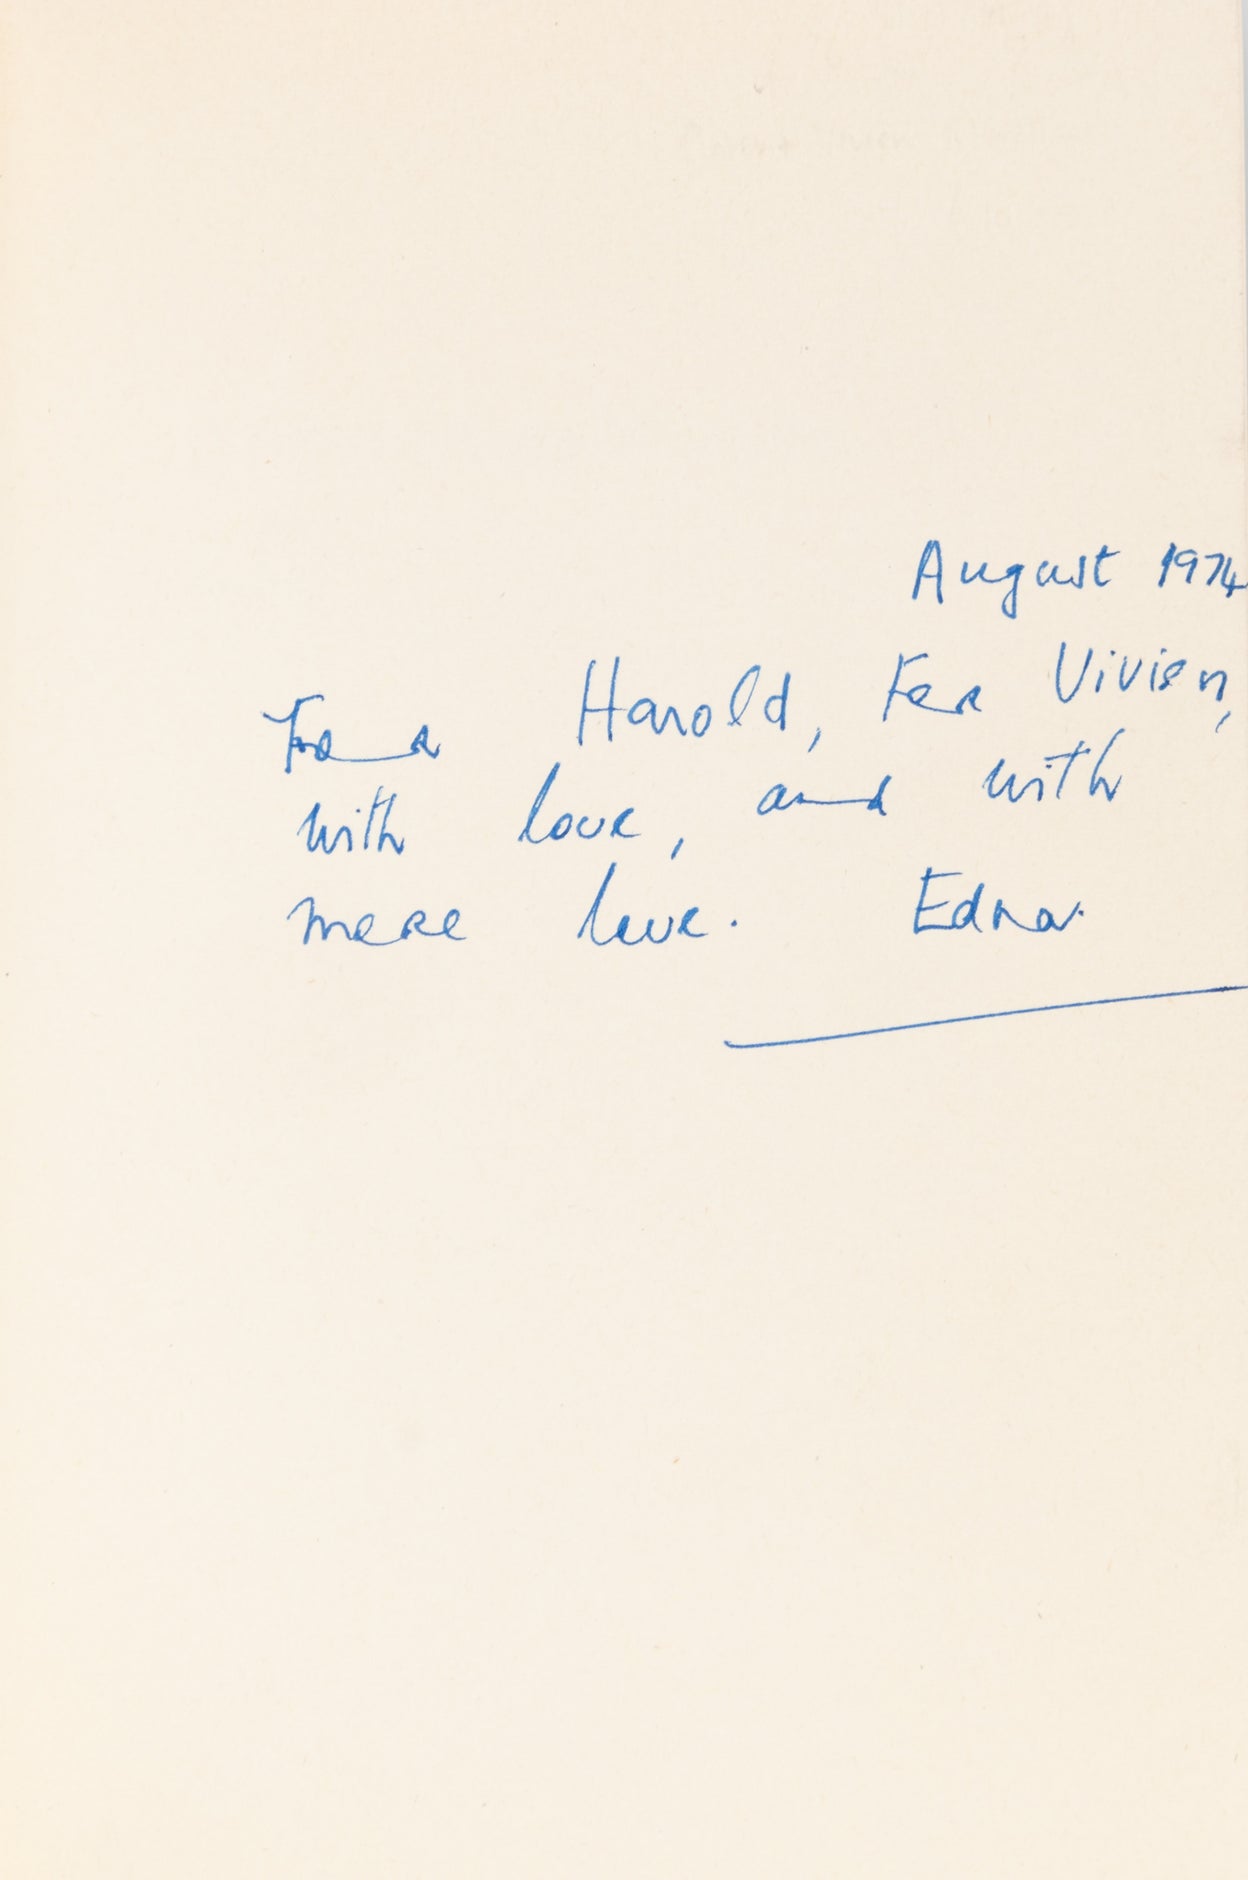 August 1974
For Harold, For Vivien,
with love, and with
more love. Edna.